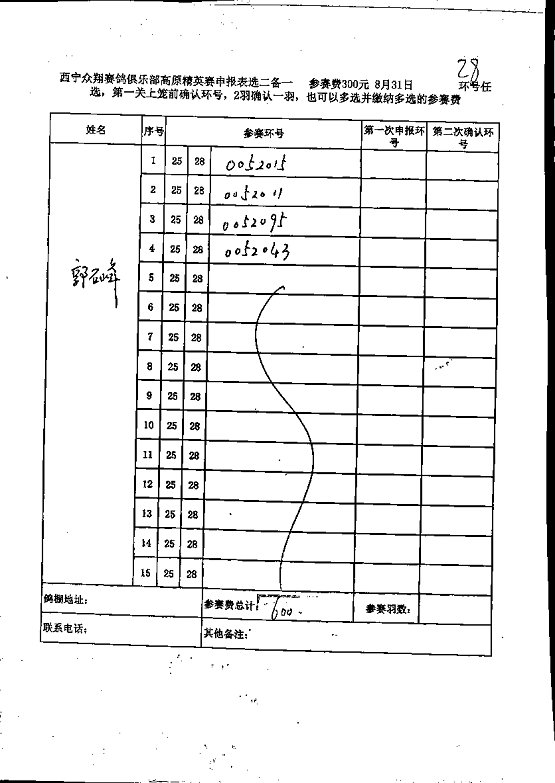 28
西宁众翔赛鸽俱乐部高原精英赛申报表选二备一 参赛费300元 8月31日 环号任
选，第一关上笼前确认环号，2羽确认一羽，也可以多选并缴纳多选的参赛费
姓名 序号 参赛环号 第一次申报环号 第二次确认环号
1 25 28 0052015
2 25 28 0052011
3 25 28 0052095
4 25 28 0052043
郭 峰 5 25 28
6 25 28
7 25 28
8 25 28
9 25 28
10 25 28
11 25 28
12 25 28
13 25 28
14 25 28
15 25 28
鸽棚地址： 参赛费总计： 600. 参赛羽数：
联系电话： 其他备注：